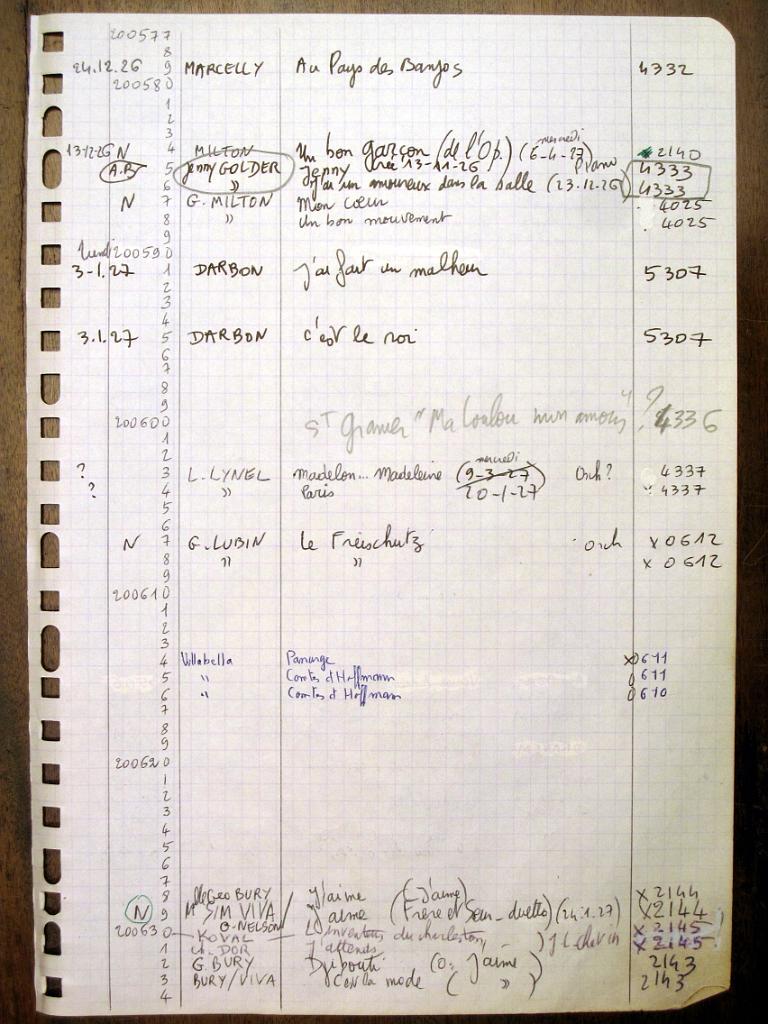 200577
8
24.12.26 9 MARCELLY Au Pays des Banjos 4332
200580
1
2
3
13-12-26 N 4 MILTON Un bon garçon (de l'Op.) (mercredi 6-4-27) 2140
A.B 5 Jenny GOLDER Jenny 13-11-26 Piano 4333
6 » J'ai un amoureux dans la salle (23.12.26) 4333
N 7 G. MILTON Mon cœur 4025
8 » Un bon mouvement 4025
9
Lundi 200590
3-1.27 1 DARBON j'ai fait un malheur 5307
2
3
4
3.1.27 5 DARBON c'est le roi 5307
6
7
8
9
200600 St Granier "Ma Loulou mon amour" ? 4336
1
2
? 3 L. LYNEL Madelon... Madeleine (mercredi 9-3-27) Orch? 4337
? 4 » Paris 20-1-27 " 4337
5
6
N 7 G. LUBIN Le Freischutz orch x 0612
8 » » x 0612
9
200610
1
2
3
4 Villabella Panurge x0611
5 " Contes d'Hoffmann 0611
6 " Contes d'Hoffmann 0610
7
8
9
200620
1
2
3
4
5
6
7
8 Geo BURY J'aime (J'aime) x 2144
N 9 SIM VIVA J'aime (Frère et Sœur - duetto) (24.1.27) x 2144
200630 KOVAL G. NELSON L'inventeur du charleston x 2145
1 DOR J'attends x 2145
2 G. BURY Djibouti (O: J'aime) 2143
3 BURY/VIVA C'est la mode ( » ) 2143
4